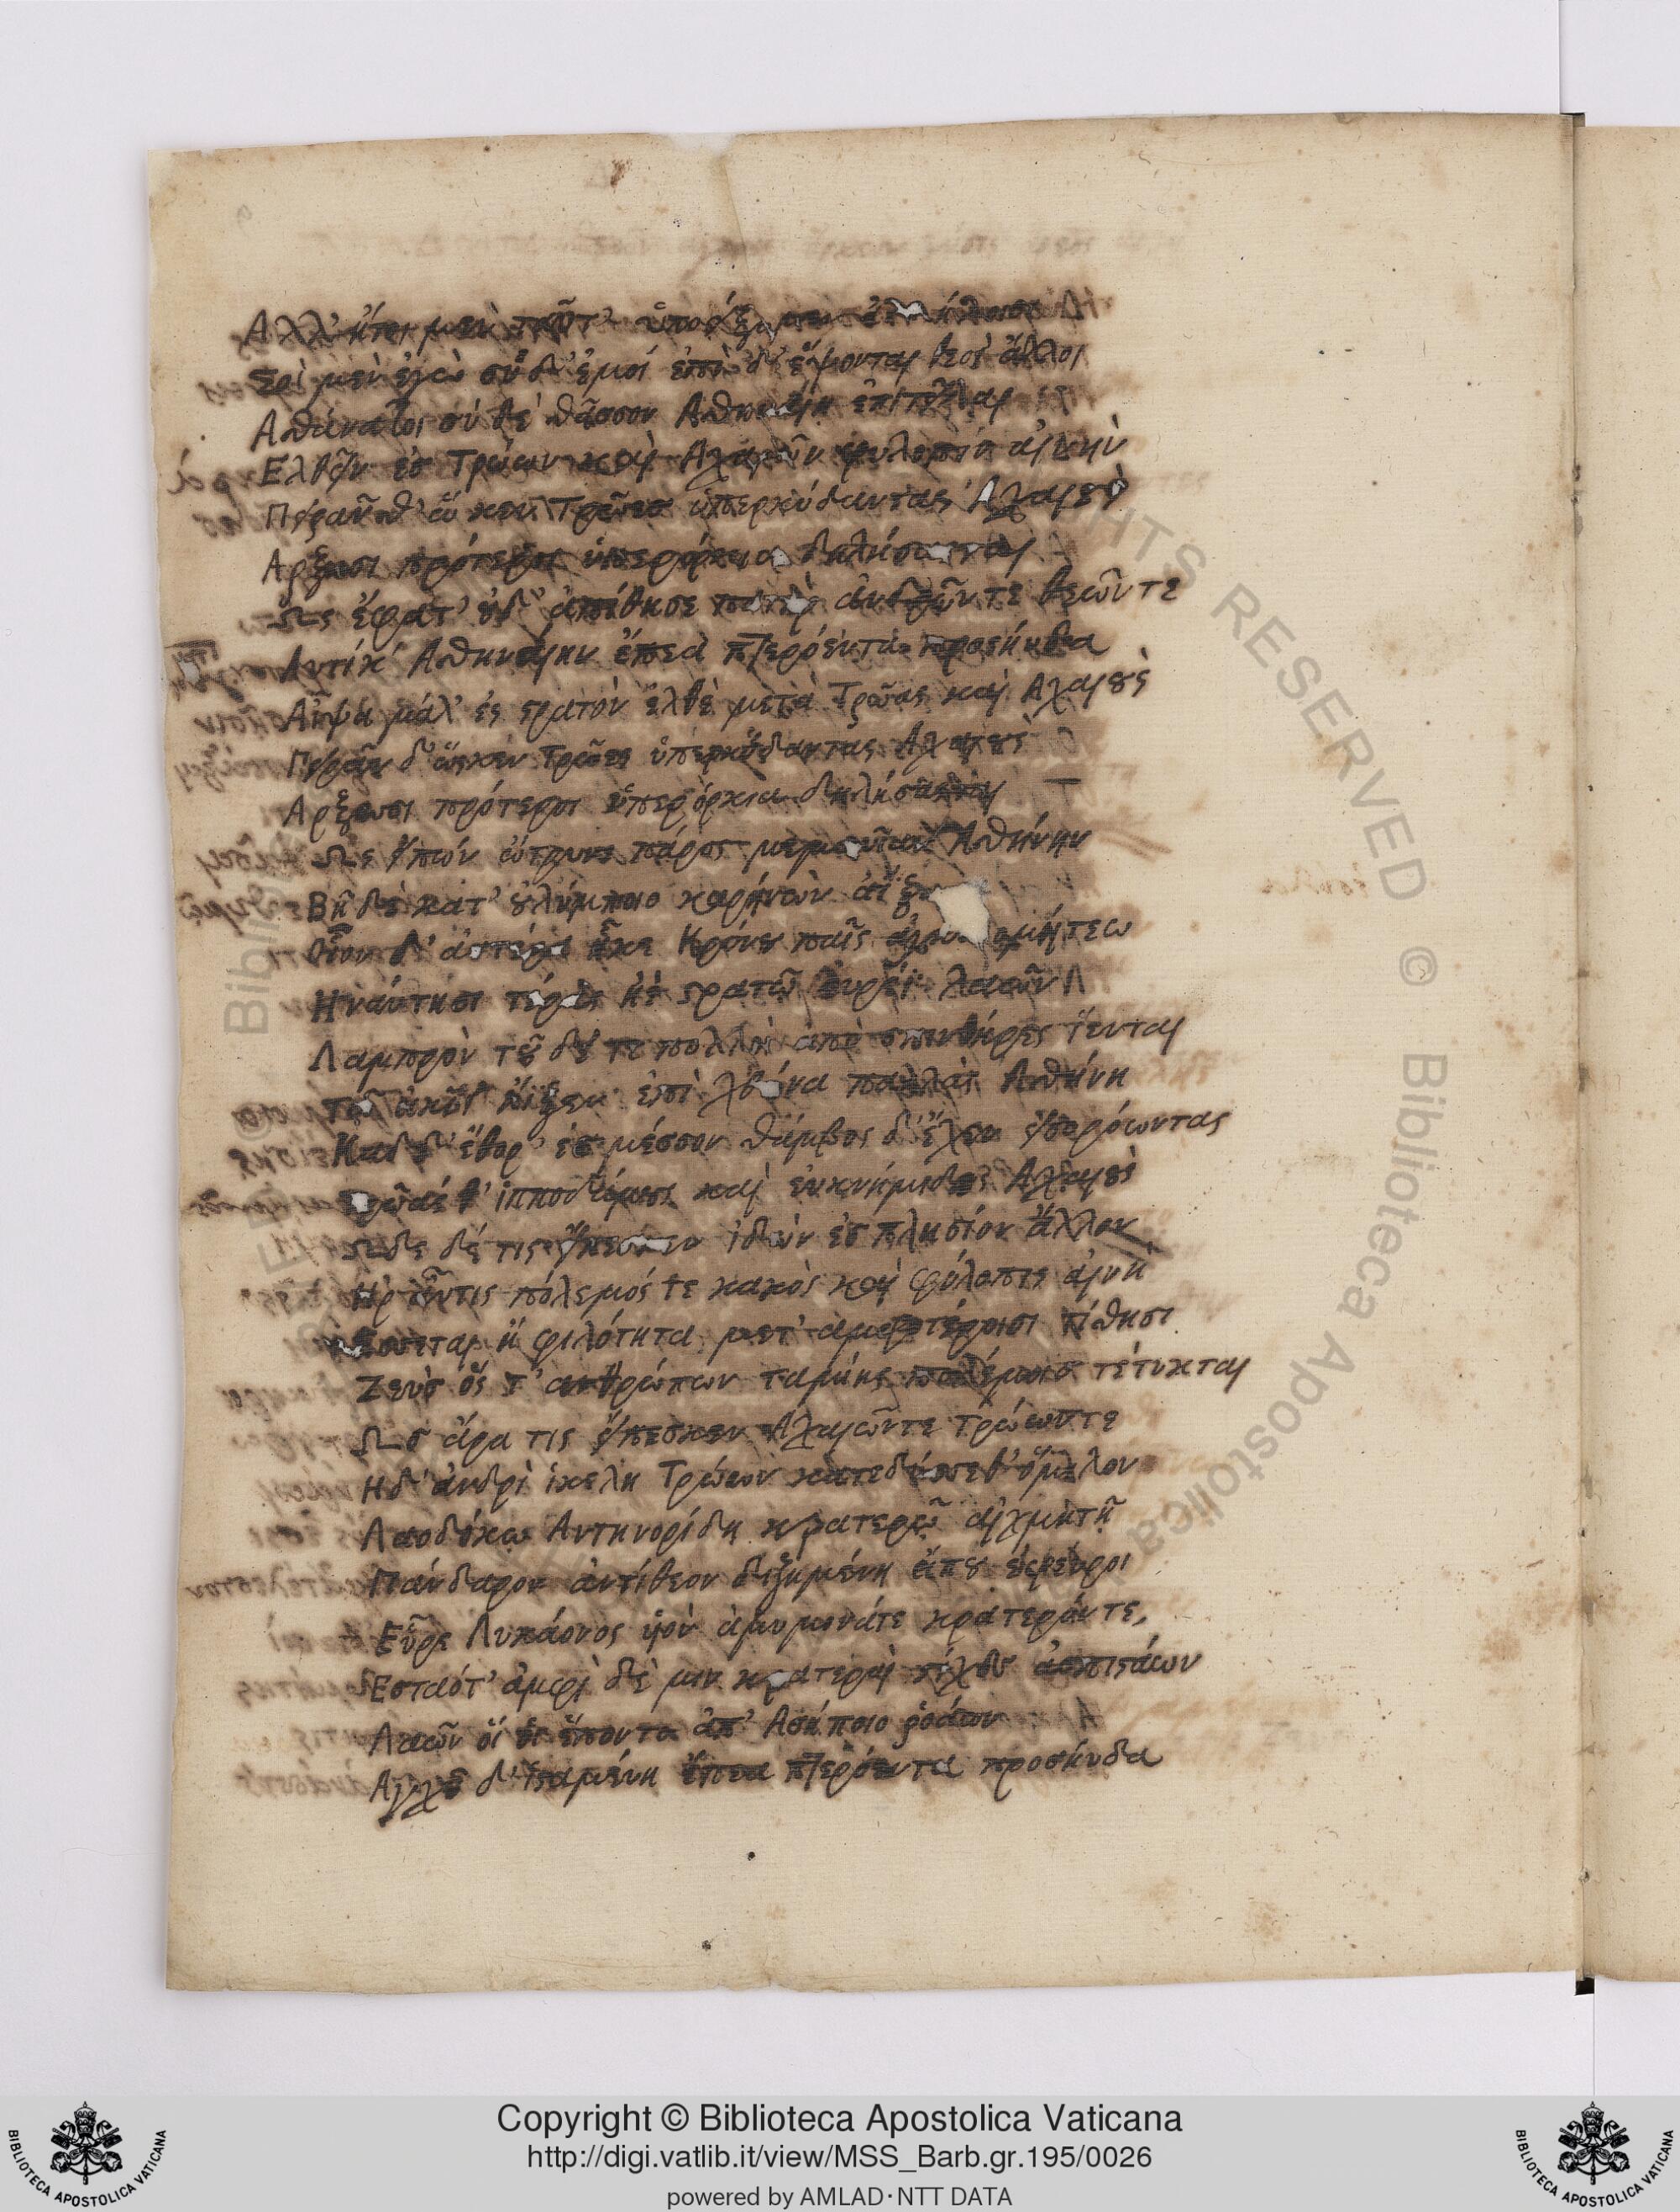 Αλλ' ἤτοι μὲν ταῦτ' ὑποείξομεν ἀλλήλοισι
Σοὶ μὲν ἐγὼ σὺ δ' ἐμοί ἐπὶ δ' ἕψονται θεοὶ ἄλλοι
Αθάνατοι σύ δὲ θᾶσσον Αθηναίη ἐπιτεῖλαι
Ελθεῖν ἐσ Τρώων καὶ Αχαιῶν φυλοπιν αἰνὴν
Πειρᾶν θ' ὥ κεν Τρῶεσ ὑπερκύδαντας Αχαιοὺ
Αρξωσι πρότεροι ὑπερόρκια δηλήσασθαι
Ως ἔφατ' οὐδ' ἀπίθησε πατὴρ ἀνδρῶντέ θεῶντε
Αυτίκ' Αθηναίην ἔπεα πτερόεντα προσηύδα
Αἶψα μάλ' ἐς στρατὸν ἐλθὲ μετὰ Τρῶας καὶ Αχαιοὺς
Πειρᾶν δ' ὥςκεν Τρῶες ὑπερκύδαντας Αχαιοὺς
Αρξωσι πρότεροι ὑπερόρκια δηλήσασθαι
Ως εἰπών ὤτρυνε πάρος μεμαυῖαν Αθήνην
Βῆ δὲ κατ' ουλύμποιο καρήνων ἀΐξα
Οἷον δ' ἀστέρα ἧκε Κρόνου παῖς ἀγκυ ομήτεω
Η ναύτησι τέρας ἠὲ στρατῷ εὐρέϊ λαῶν
Λαμπρὸν τοῦ δέ τε πολλοὶ ἀπὸ σπινθῆρες ἵενται
Τῷ εἰκυῖ' ἤϊξεν ἐπὶ χθόνα παλλὰς Αθήνη
Καδ δ' ἔθορ' ἐς μέσσον θάμβος δ' ἔχεν εἰσορόωντας
Τρῶάς θ' ἱπποδάμους καὶ ἐυκνήμιδας Αχαιοὺς
Ωδε δέ τις εἴπεσκεν ἰδὼν ἐσ πλησίον ἄλλον
Ηρ αὖτις πόλεμός τε κακὸς καὶ φύλοπις αἰνὴ
Εσσεται ἢ φιλότητα μετ' ἀμφοτέροισι τίθησι
Ζευσ ὅς τ' ἀνθρώπων ταμίης πολέμοιο τέτυκται
Ωσ ἄρα τις εἴπεσκεν Αχαιῶντε Τρώωντε
Ηδ' ἀνδρὶ ἰκέλη Τρώων κατεδύσεθ' ὅμιλον
Λαοδόκῳ Αντηνορίδη κρατερῷ αἰχμητῇ
Πάνδαρον ἀντίθεον διζημένη εἴπου ἐφεύροι
Εὗρε Λυκάονος υἱὸν ἀμύμονάτε κρατερόντε,
Εσταότ' ἀμφὶ δέ μιν κρατεραὶ στίχες ἀσπιστάων
Λαῶν οἵ οἱ ἕποντο ἀπ' Ασήποιο ῥοάων
Αγχοῦ δ' ἱσταμένη ἔπεα πτερόεντα προσηύδα
Copyright © Biblioteca Apostolica Vaticana
http://digi.vatlib.it/view/MSS_Barb.gr.195/0026
powered by AMLAD·NTT DATA